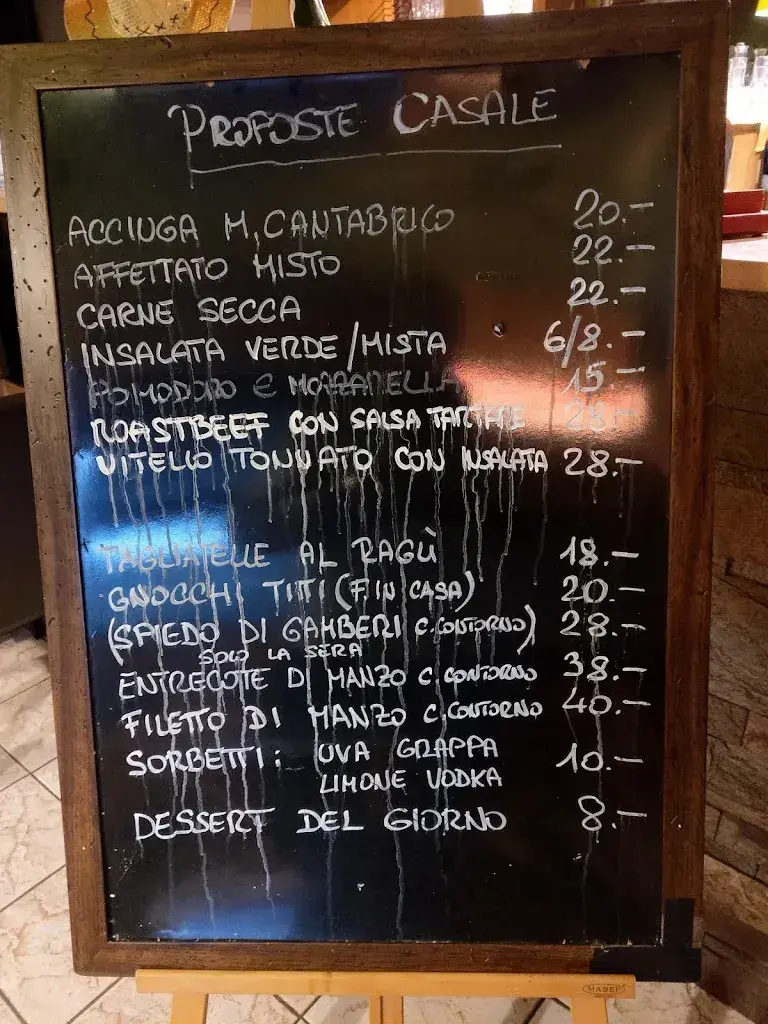 PROPOSTE CASALE
ACCIUGA M. CANTABRICO 20.-
AFFETTATO MISTO 22.-
CARNE SECCA 22.-
INSALATA VERDE/MISTA 6/8.-
POMODORO E MOZZARELLA 15.-
ROASTBEEF CON SALSA TARTARE 28.-
VITELLO TONNATO CON INSALATA 28.-
TAGLIATELLE AL RAGÙ 18.-
GNOCCHI TITI (FIN CASA) 20.-
(SPIEDO DI GAMBERI C. CONTORNO) 28.-
SOLO LA SERA
ENTRECOTE DI MANZO C. CONTORNO 38.-
FILETTO DI MANZO C. CONTORNO 40.-
SORBETTI: UVA GRAPPA 10.-
LIMONE VODKA
DESSERT DEL GIORNO 8.-
MABEF